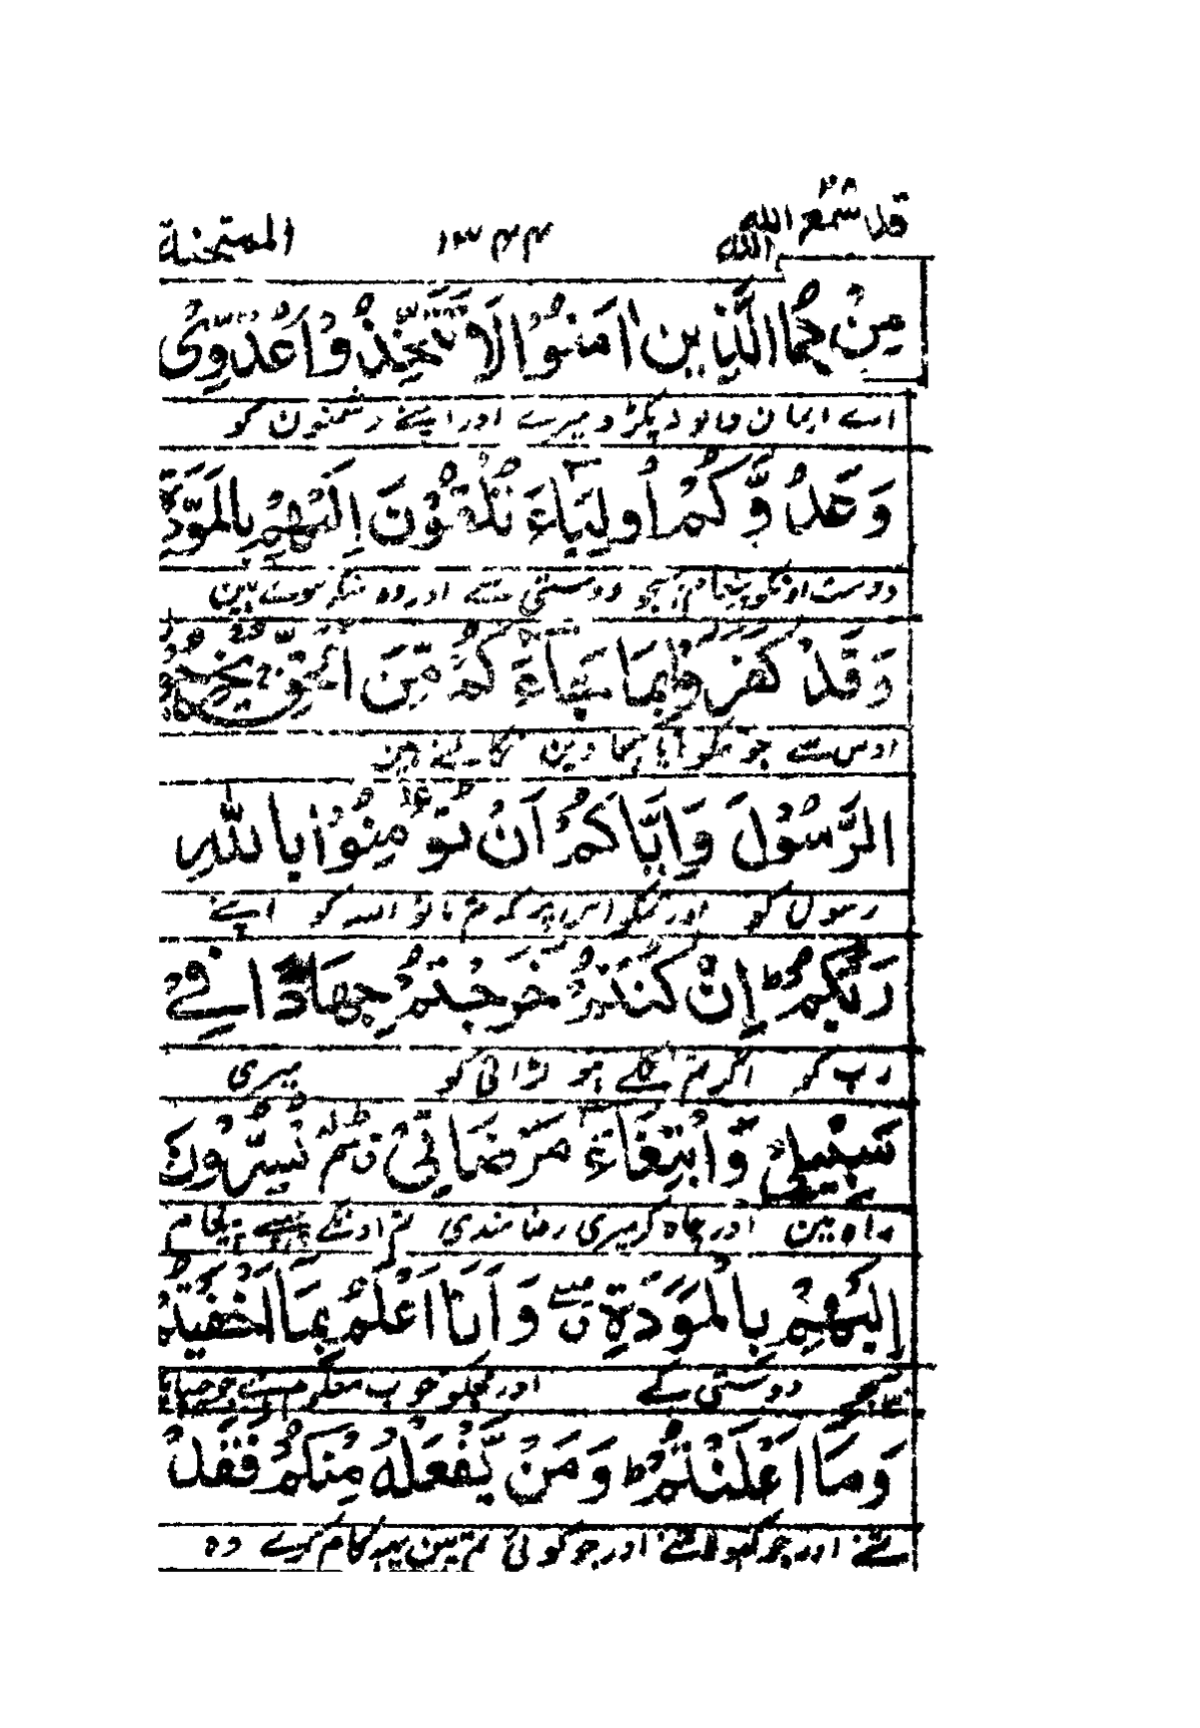 قد سمع الله ٢٨ ١٣٤٤ الممتحنة
الَّذِينَ اٰمَنُوْا لَا تَتَّخِذُوْا عَدُوِّىْ
اے ایمان والو نہ پکڑو میرے اور اپنے دشمنون کو
وَعَدُوَّكُمْ اَوْلِيَآءَ تُلْقُوْنَ اِلَيْهِمْ بِالْمَوَدَّةِ
دوست اونکو پیغام بھیجو دوستی سے اور وہ منکر ہوے ہین
وَقَدْ كَفَرُوْا بِمَا جَآءَكُمْ مِّنَ الْحَقِّ يُخْرِجُوْنَ
اوس سے جو تمکو آیا سچا دین نکالتے ہین
الرَّسُوْلَ وَاِيَّاكُمْ اَنْ تُؤْمِنُوْا بِاللّٰهِ
رسول کو اور تمکو اس پر کہ تم مانو اللہ کو اپنے
رَبِّكُمْ ط اِنْ كُنْتُمْ خَرَجْتُمْ جِهَادًا فِيْ
رب کو اگر تم نکلے ہو لڑائی کو میری
سَبِيْلِيْ وَابْتِغَآءَ مَرْضَاتِيْ تُسِرُّوْنَ
راہ مین اور چاہ کر میری رضامندی تم اونکے چھپے پیغام
اِلَيْهِمْ بِالْمَوَدَّةِ وَاَنَا اَعْلَمُ بِمَا اَخْفَيْتُمْ
بھیجو دوستی کے اور مجکو خوب معلوم ہے جو چھپایا
وَمَا اَعْلَنْتُمْ ط وَمَنْ يَّفْعَلْهُ مِنْكُمْ فَقَدْ
تمنے اور جو کھولا تمنے اور جو کوئی تم مین یہہ کام کرے وہ